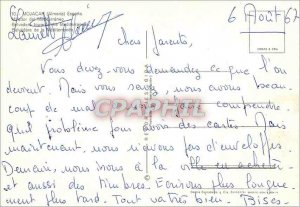 6 Août 67
10 - MOJACAR (Almería) España
Chers Parents,
Vous devez vous demander ce que l'on
devient. Mais vous savez, nous avons beau-
coup de mal
problème pour avoir des cartes. Mais
maintenant, nous n'avons pas d'enveloppes
Demain, nous irons à la ville en acheter
et aussi des timbres. Ecrirons plus longue-
ment plus tard. Tout va très bien. Bises.